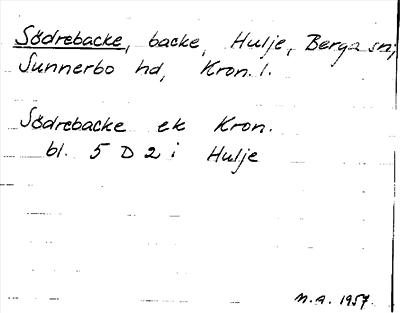 Södrebacke, backe, Hulje, Berga sn,
Sunnerbo hd, Kron. l.
Södrebacke ek Kron.
bl. 5 D 2 i Hulje
N.A. 1957.